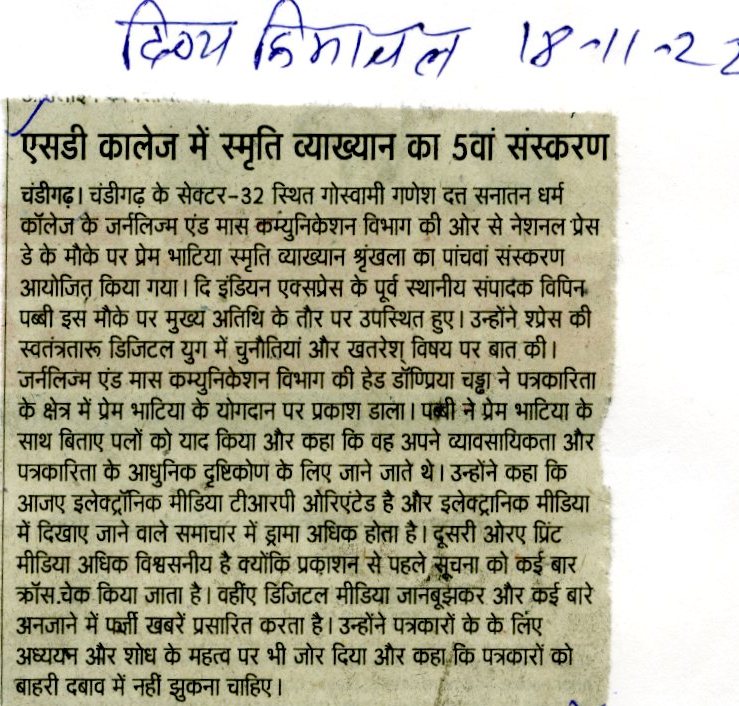 दिव्य हिमाचल 18-11-22
एसडी कालेज में स्मृति व्याख्यान का 5वां संस्करण
चंडीगढ़। चंडीगढ़ के सेक्टर-32 स्थित गोस्वामी गणेश दत्त सनातन धर्म
कॉलेज के जर्नलिज्म एंड मास कम्युनिकेशन विभाग की ओर से नेशनल प्रेस
डे के मौके पर प्रेम भाटिया स्मृति व्याख्यान श्रृंखला का पांचवा संस्करण
आयोजित किया गया। दि इंडियन एक्सप्रेस के पूर्व स्थानीय संपादक विपिन
पब्बी इस मौके पर मुख्य अतिथि के तौर पर उपस्थित हुए। उन्होंने श्प्रेस की
स्वतंत्रतारू डिजिटल युग में चुनौतियां और खतरेश् विषय पर बात की।
जर्नलिज्म एंड मास कम्युनिकेशन विभाग की हेड डॉण्प्रिया चड्ढा ने पत्रकारिता
के क्षेत्र में प्रेम भाटिया के योगदान पर प्रकाश डाला। पब्बी ने प्रेम भाटिया के
साथ बिताए पलों को याद किया और कहा कि वह अपने व्यावसायिकता और
पत्रकारिता के आधुनिक दृष्टिकोण के लिए जाने जाते थे। उन्होंने कहा कि
आजए इलेक्ट्रॉनिक मीडिया टीआरपी ओरिएंटेड है और इलेक्ट्रानिक मीडिया
में दिखाए जाने वाले समाचार में ड्रामा अधिक होता है। दूसरी ओरए प्रिंट
मीडिया अधिक विश्वसनीय है क्योंकि प्रकाशन से पहले सूचना को कई बार
क्रॉस.चेक किया जाता है। वहींए डिजिटल मीडिया जानबूझकर और कई बारे
अनजाने में फर्जी खबरें प्रसारित करता है। उन्होंने पत्रकारों के के लिए
अध्ययन और शोध के महत्व पर भी जोर दिया और कहा कि पत्रकारों को
बाहरी दबाव में नहीं झुकना चाहिए।